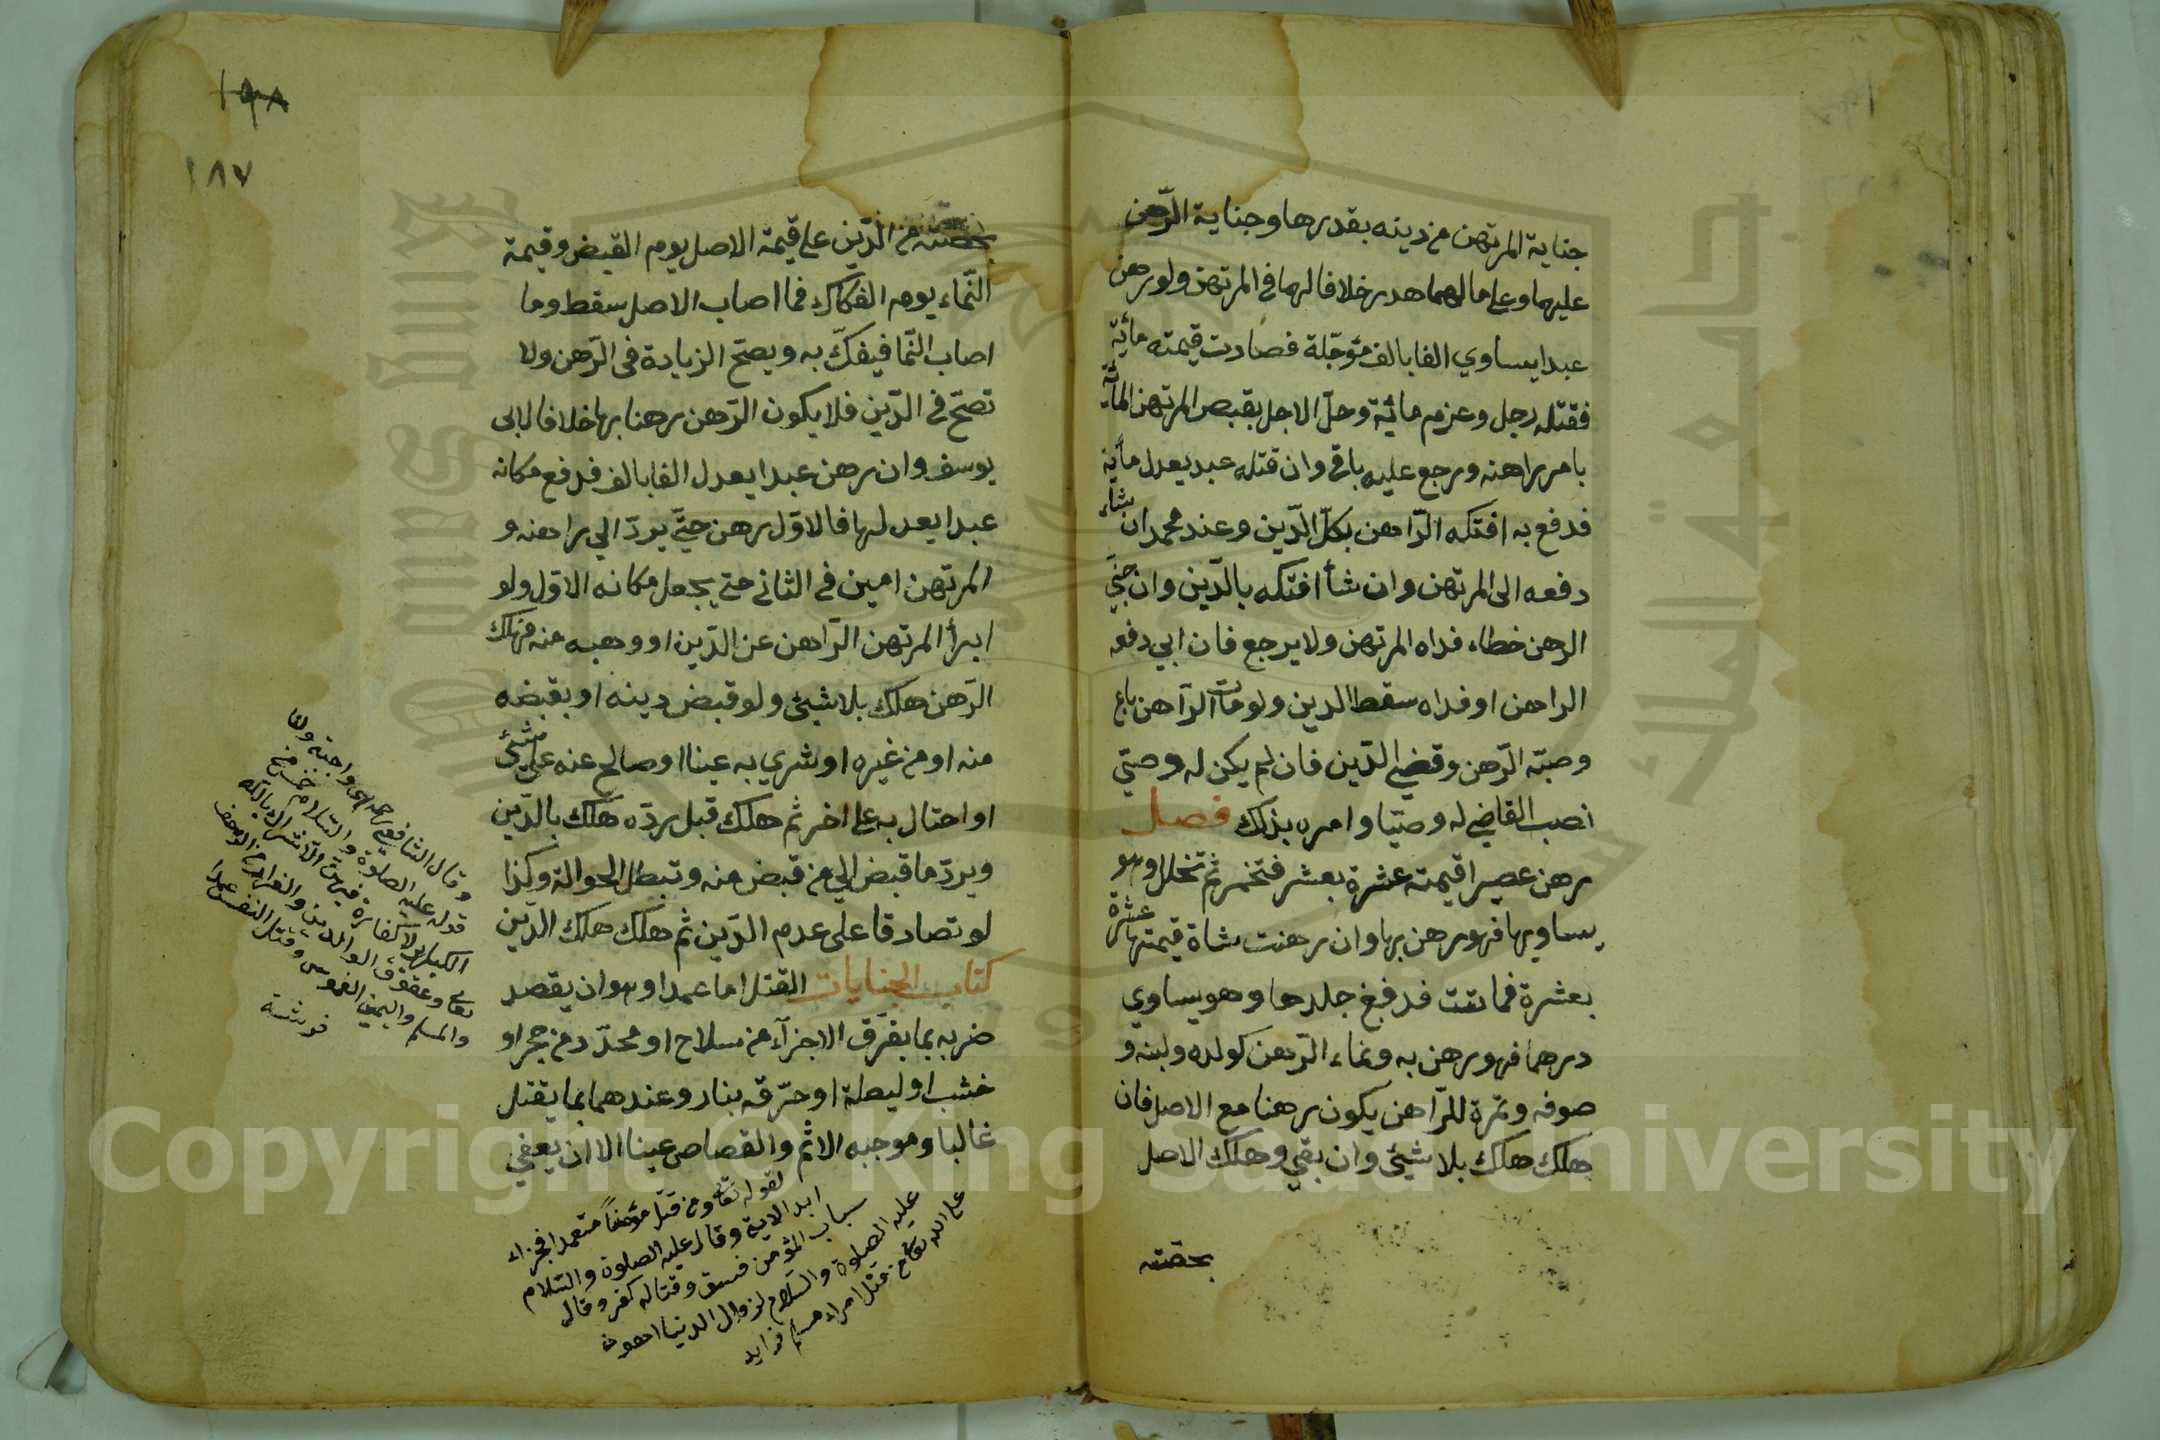 جناية المرتهن من دينه بقدرها وجناية الرّهن
عليهما وعلى مالهما هدر خلافا لهما في المرتهن ولو رهن
عبدا يساوي الفا بالف مؤجّلة فصارت قيمته مائة
فقتله رجل وغرم مائة وحلّ الاجل يقبض المرتهن المائة
بامر راهنه ورجع عليه باقى وان قتله عبد يعدل مائة
فدفع به افتكه الرّاهن بكلّ الدّين وعند محمد ان شاء
دفعه الى المرتهن وان شأ افتكه بالدّين وان جنى
الرهن خطاء فداه المرتهن ولا يرجع فان ابى دفعه
الراهن او فداه سقط الدين ولو مات الرّاهن باع
وصيّه الرّهن وقضى الدّين فان لم يكن له وصيّ
نصب القاضى له وصيّا وامره بذلك فصل
رهن عصيرا قيمته عشرة بعشر فتخمر ثم تخلل وهو
يساويها فهو رهن بها وان رهنت شاة قيمتها عشرة
بعشرة فماتت فدفغ جلدها وهو يساوي
درهما فهو رهن به ونماء الرّهن كولده ولبنه و
صوفه وثمرة للرّاهن يكون رهنا مع الاصل فان
هلك هلك بلا شيئ وان بقى وهلك الاصل
بحصّته
١٩٨
١٨٧
بحصّته من الدّين على قيمة الاصل يوم القبض وقيمة
النّماء يوم الفكاك فما اصاب الاصل سقط وما
اصاب النّما فيفكّ به ويصحّ الزيادة فى الرّهن ولا
تصحّ فى الدّين فلا يكون الرّهن رهنا بها خلافا لابى
يوسف وان رهن عبدا يعدل الفا بالف فدفع مكانه
عبدا يعدلها فالاوّل رهن حتّى يردّ الى راهنه و
المرتهن امين فى الثانى حتى يجعل مكانه الاوّل ولو
ابرأ المرتهن الرّاهن عن الدّين او وهبه منه فهلك
الرّهن هلك بلا شيئ ولو قبض دينه او بقبضه
منه او من غيره او شري به عينا او صالح عنه على شيئ
او احتال به على اخر ثم هلك قبل ردّه هلك بالدّين
ويردّ ما قبض الى من قبض منه وتبطل الحوالة وكذا
لو تصادقا على عدم الدّين ثم هلك هلك الدّين
كتاب الجنايات القتل اما عمد وهو ان يقصد
ضربه بما يفرّق الاجزآء من سلاح او محدّد من حجر او
خشب او ليطة او حرّقه بنار وعندهما بما يقتل
غالبا وموجبه الاثم والقصاص عينا الا ان يعفى
لقوله تعا ومن قتل مؤمنا متعمدا فجزاء
ابد الاية وقال عليه الصلوة والسّلام
سباب المؤمن فسق وقتاله كفر وقال
عليه الصلوة والسّلام لزوال الدنيا اهون
على الله تعا من قتل امراء مسلم
وقال الشافعى واجبة
قوله عليه الصلوة والسّلام خمس من
الكبائر لا كفارة فيهنّ الاشراك بالله
تعا وعقوق الوالدين والفرار من الزحف
وقتل النفس عمدا
واليمين الغموس